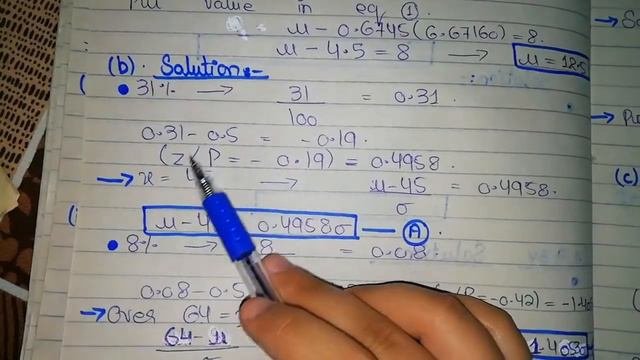 Put value in eq ①
μ - 0.6745(6.67160) = 8.
μ - 4.5 = 8 → μ = 12.5
(b). Solution:-
• 31% → 31/100 = 0.31
0.31 - 0.5 = -0.19.
(z / P = - 0.19) = 0.4958.
→ x = → μ-45/σ = 0.4958.
μ-4 0.4958σ — Ⓐ
• 8% → 8 = 0.08
0.08-0.5 -0.42) = -1.40
→ Over 64 =
64-μ
(c)